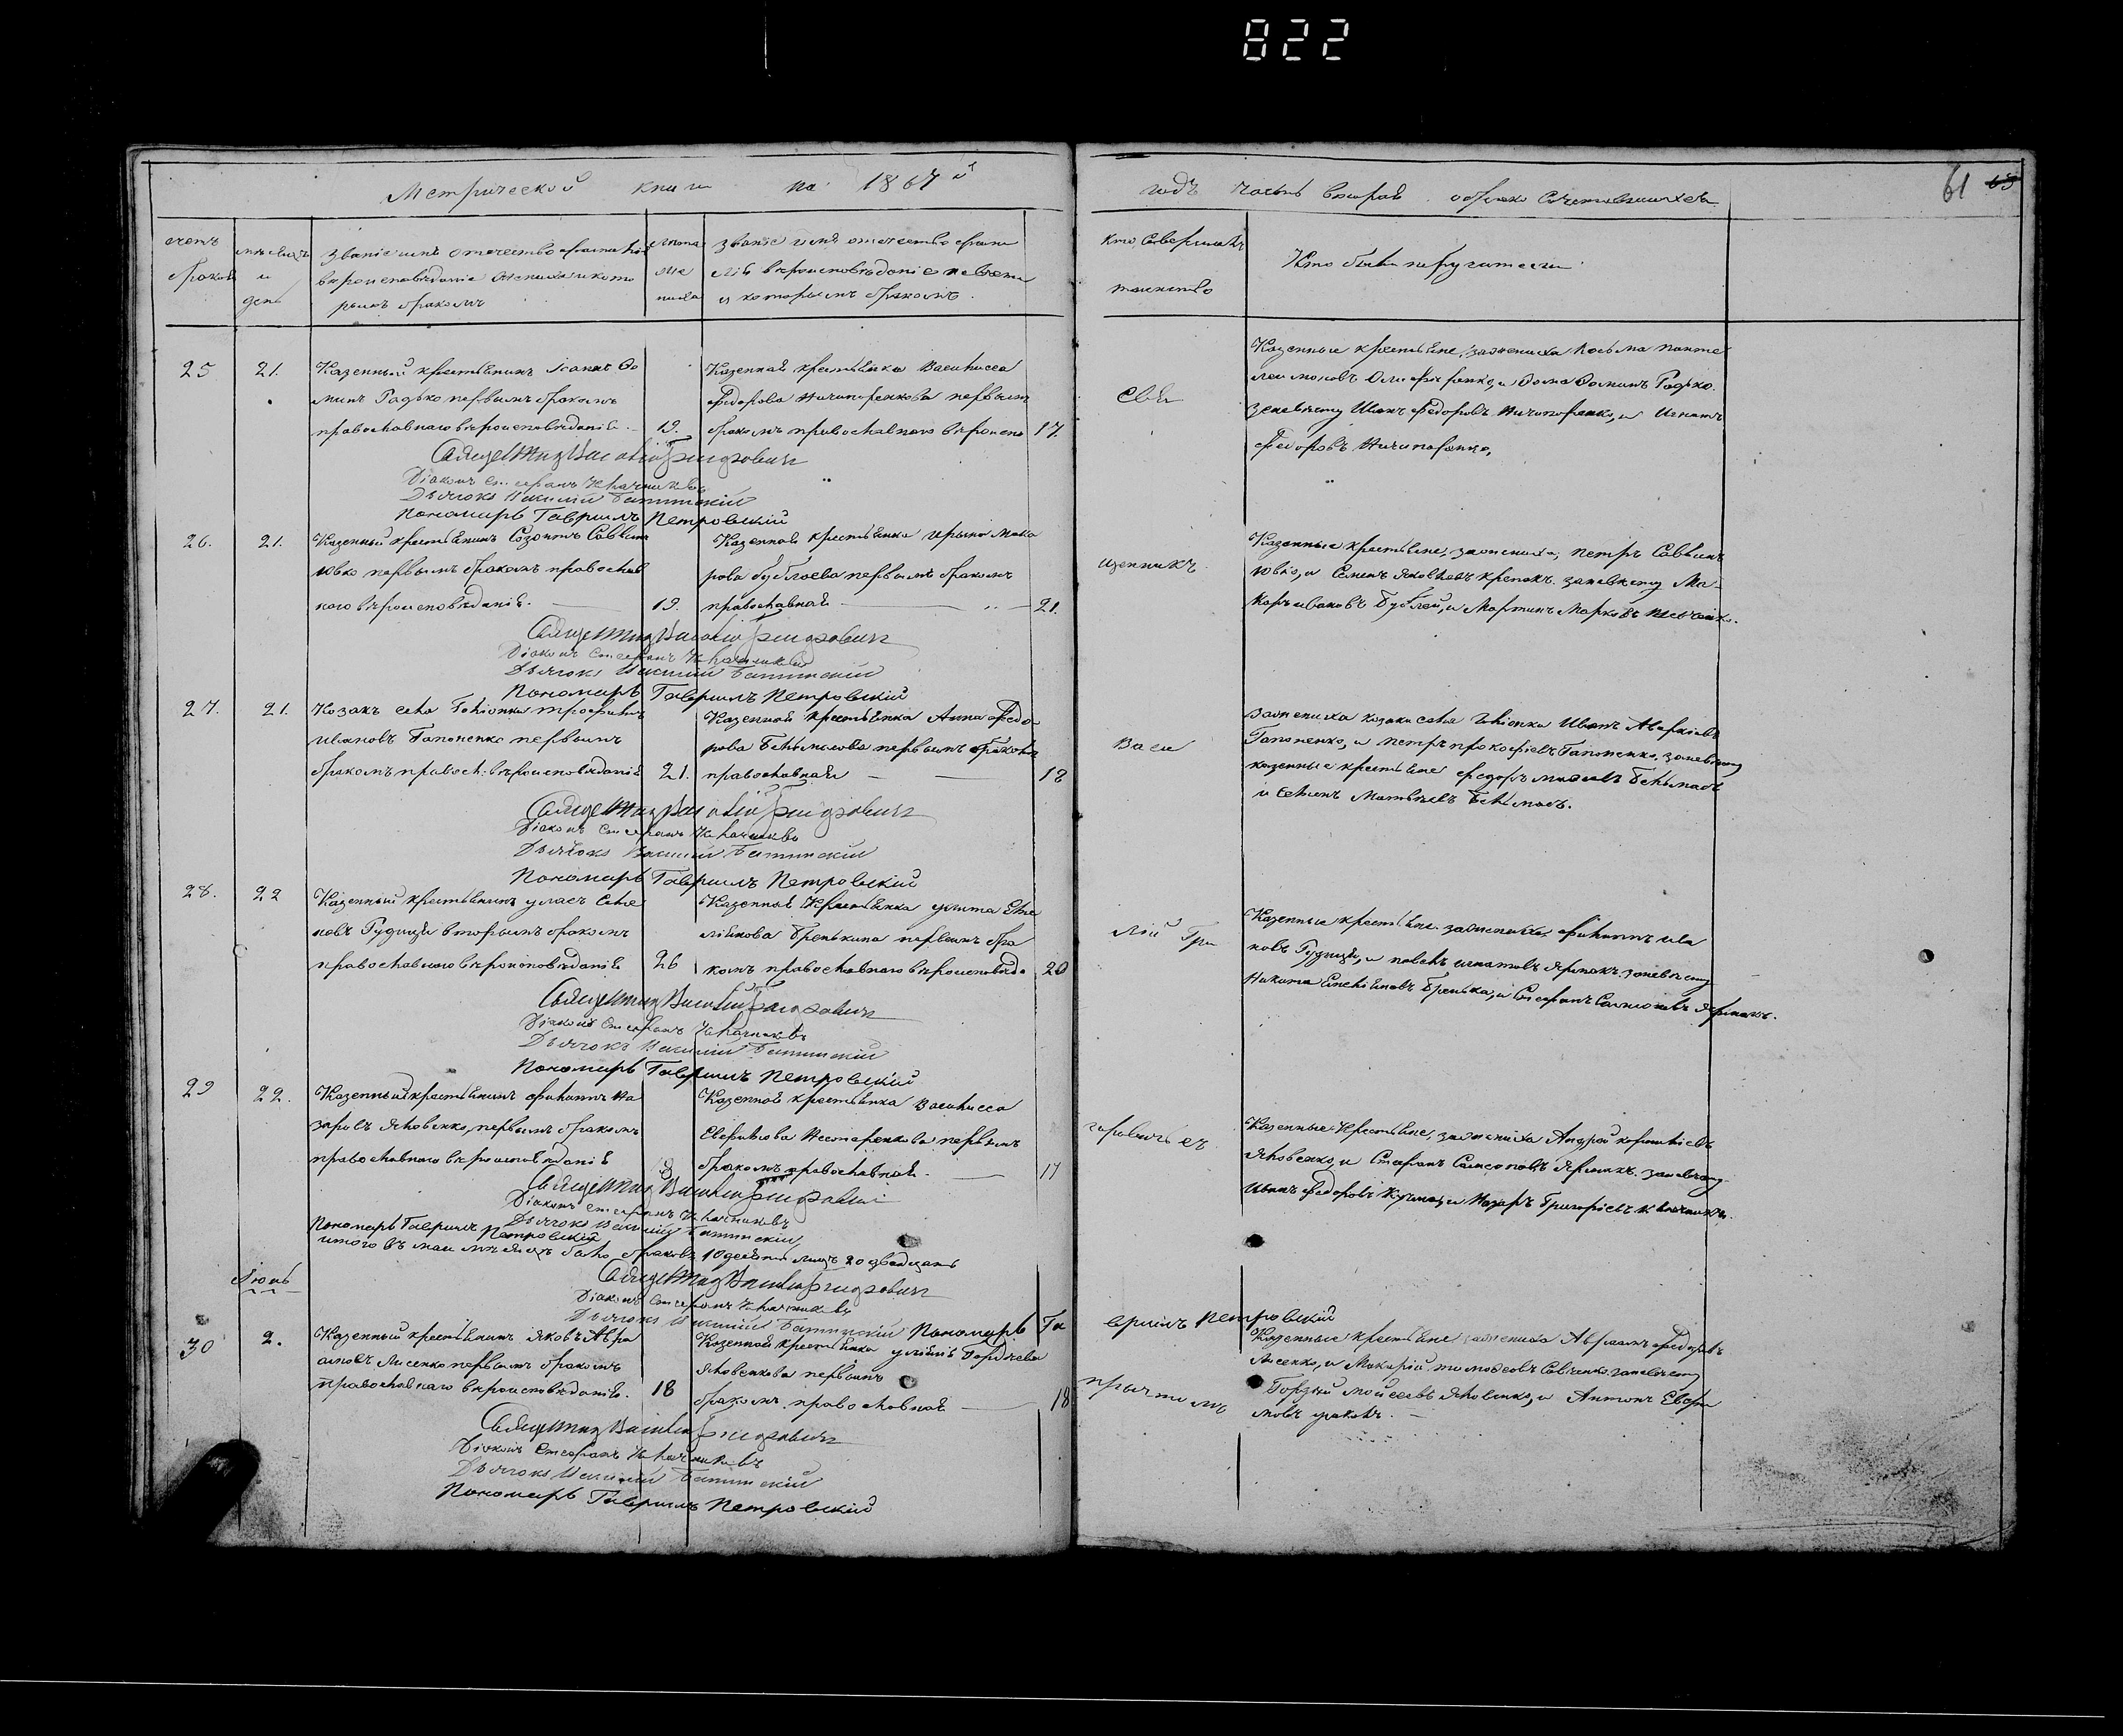 822
Метрической книги на 1867й
годъ часть вторая о бракосочетавшихся
61 63
счетъ
браковъ
мѣсяцъ
и
день
Званіе имя отечество фамилія
вѣроисповѣданіе жениха и кото
рымъ бракомъ
лѣта
же
ниха
Званіе имя отечество фами
лія вѣроисповѣданіе невѣсты
и которымъ бракомъ.
Кто совершалъ
таинство
Кто были поручители
25
21.
Казенный крестьянинъ Іоаннъ Ѳо
минъ Гадько первымъ бракомъ
православнаго вѣроисповѣданія
19.
Казенная крестьянка Василисса
Федорова Ничипоренкова первымъ
бракомъ православнаго вѣроиспо
17.
Свя
Казенные крестьяне, за жениха Косьма Панте
леимоновъ и Ѳома Ѳоминъ Гадько.
за невѣсту Иванъ Федоровъ Ничипоренко, и Игнатъ
Федоровъ Ничипоренко,
Священникъ Василій Григоровичъ
Діаконъ Стефанъ
Дьячокъ Василій
Пономарь Гавріилъ Петровскій
26.
21.
Казенный крестьянинъ Созонтъ Саввинъ
Ювко первымъ бракомъ православ
наго вѣроисповѣданія.
19.
Казенная крестьянка Ирина Мака
рова Бублеева первымъ бракомъ
православная
21.
щенникъ
Казенные крестьяне, за жениха, Петръ Саввинъ
Ювко, и Семенъ Яковлевъ за невѣсту Ма-
каръ Ивановъ Бублей, и Мартинъ Марковъ
Священникъ Василій Григоровичъ
Діаконъ Стефанъ
Дьячокъ Василій
Пономарь Гавріилъ Петровскій
27.
21.
Козакъ села Трофимъ
Ивановъ Гапоненко первымъ
бракомъ правосл: вѣроисповѣданія
21.
Казенная крестьянка Анна Федо
рова первымъ бракомъ
православная
18
Васи
За жениха козаки села Иванъ Аверкіевъ
Гапоненко, и Петръ Прокофіевъ Гапоненко, за невѣсту
казенные крестьяне Федоръ
и Матвѣевъ
Священникъ Василій Григоровичъ
Діаконъ Стефанъ
Дьячокъ Василій
Пономарь Гавріилъ Петровскій
28.
22
Казенный крестьянинъ Семе
новъ Рудица вторымъ бракомъ
православнаго вѣроисповѣданія
26
Казенная крестьянка Емел
первымъ бра
комъ православнаго вѣроисповѣда
20
лій Гри
Казенные крестьяне за жениха, Филиппъ Ива
новъ Рудица, и Павелъ Игнатовъ Ярмакъ. за невѣсту
Никита и Стефанъ Самсоновъ Ярмакъ.
Священникъ Василій Григоровичъ
Діаконъ Стефанъ
Дьячокъ Василій
Пономарь Гавріилъ Петровскій
29
22.
Казенный крестьянинъ Филиппъ На
заровъ Яковенко, первымъ бракомъ
православнаго вѣроисповѣданія
18
Казенная крестьянка Василисса
Евфимова Нестеренкова первымъ
бракомъ православная.
17
горовичъ съ
Казенные крестьяне, за жениха Андрей Корниліевъ
Яковенко и Стефанъ Самсоновъ Ярмакъ. за невѣсту
Иванъ Федоровъ и Назаръ Григоріевъ
Священникъ Василій Григоровичъ
Діаконъ Стефанъ
Дьячокъ Василій
Пономарь Гавріилъ Петровскій
Итого въ маи мѣсяцѣ было браковъ 10 десять лицъ 20 двадцать
Священникъ Василій Григоровичъ
Діаконъ Стефанъ
Дьячокъ Василій Пономарь Га
вріилъ Петровскій
Іюнь
30
2.
Казенный крестьянинъ Яковъ Авра
амовъ Лисенко первымъ бракомъ
православнаго вѣроисповѣданія.
18
Казенная крестьянка Гордѣева
Яковенкова первымъ
бракомъ православная
18
причтомъ
Казенные крестьяне за жениха Авраамъ Федоровъ
Лисенко, и Макарій Тимофеевъ Савченко. за невѣсту
Гордѣй Мойсеевъ Яковенко, и Антонъ Евфи
мовъ
Священникъ Василій Григоровичъ
Діаконъ Стефанъ
Дьячокъ Василій
Пономарь Гавріилъ Петровскій